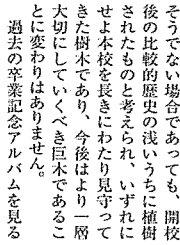 そうでない場合であっても、開校
後の比較的歴史の浅いうちに植樹
されたものと考えられ、いずれに
せよ本校を長きにわたり見守って
きた樹木であり、今後はより一層
大切にしていくべき巨木であるこ
とに変わりはありません。
過去の卒業記念アルバムを見る